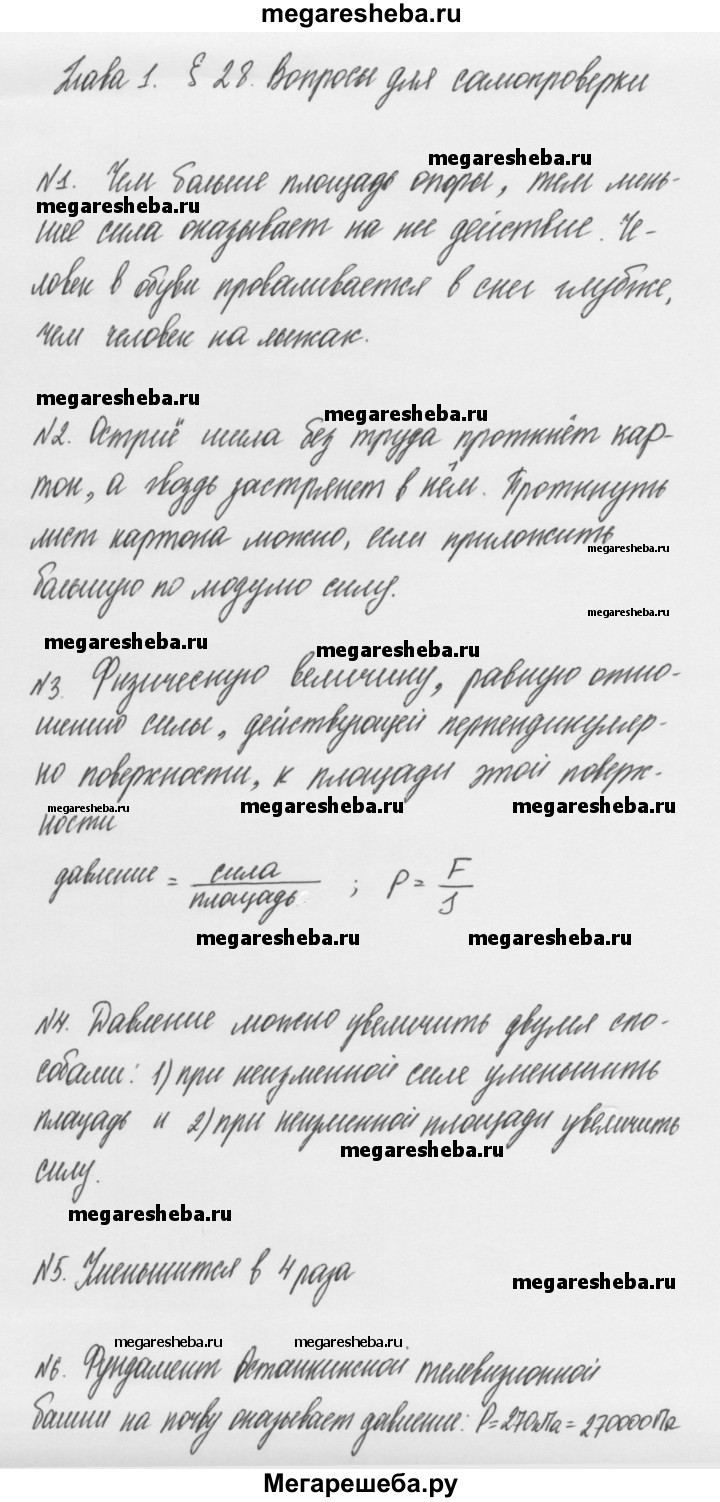 megaresheba.ru
Глава 1. § 28. Вопросы для самопроверки
megaresheba.ru
№1. Чем больше площадь опоры, тем мень-
megaresheba.ru
шее сила оказывает на нее действие. Че-
ловек в обуви проваливается в снег глубже,
чем человек на лыжах.
megaresheba.ru
megaresheba.ru
№2. Остриё шила без труда проткнёт кар-
тон, а гвоздь застрянет в нём. Проткнуть
лист картона можно, если приложить
megaresheba.ru
большую по модулю силу.
megaresheba.ru
megaresheba.ru
megaresheba.ru
№3. Физическую величину, равную отно-
шению силы, действующей перпендикуляр-
но поверхности, к площади этой поверх-
megaresheba.ru megaresheba.ru megaresheba.ru
ности
давление = сила / площадь ; P = F / S
megaresheba.ru megaresheba.ru
№4. Давление можно увеличить двумя спо-
собами: 1) при неизменной силе уменьшить
площадь и 2) при неизменной площади увеличить
megaresheba.ru
силу.
megaresheba.ru
№5. Уменьшится в 4 раза
megaresheba.ru
megaresheba.ru megaresheba.ru
№6. Фундамент Останкинской телевизионной
башни на почву оказывает давление: P=270кПа=270000Па
Мегарешеба.ру